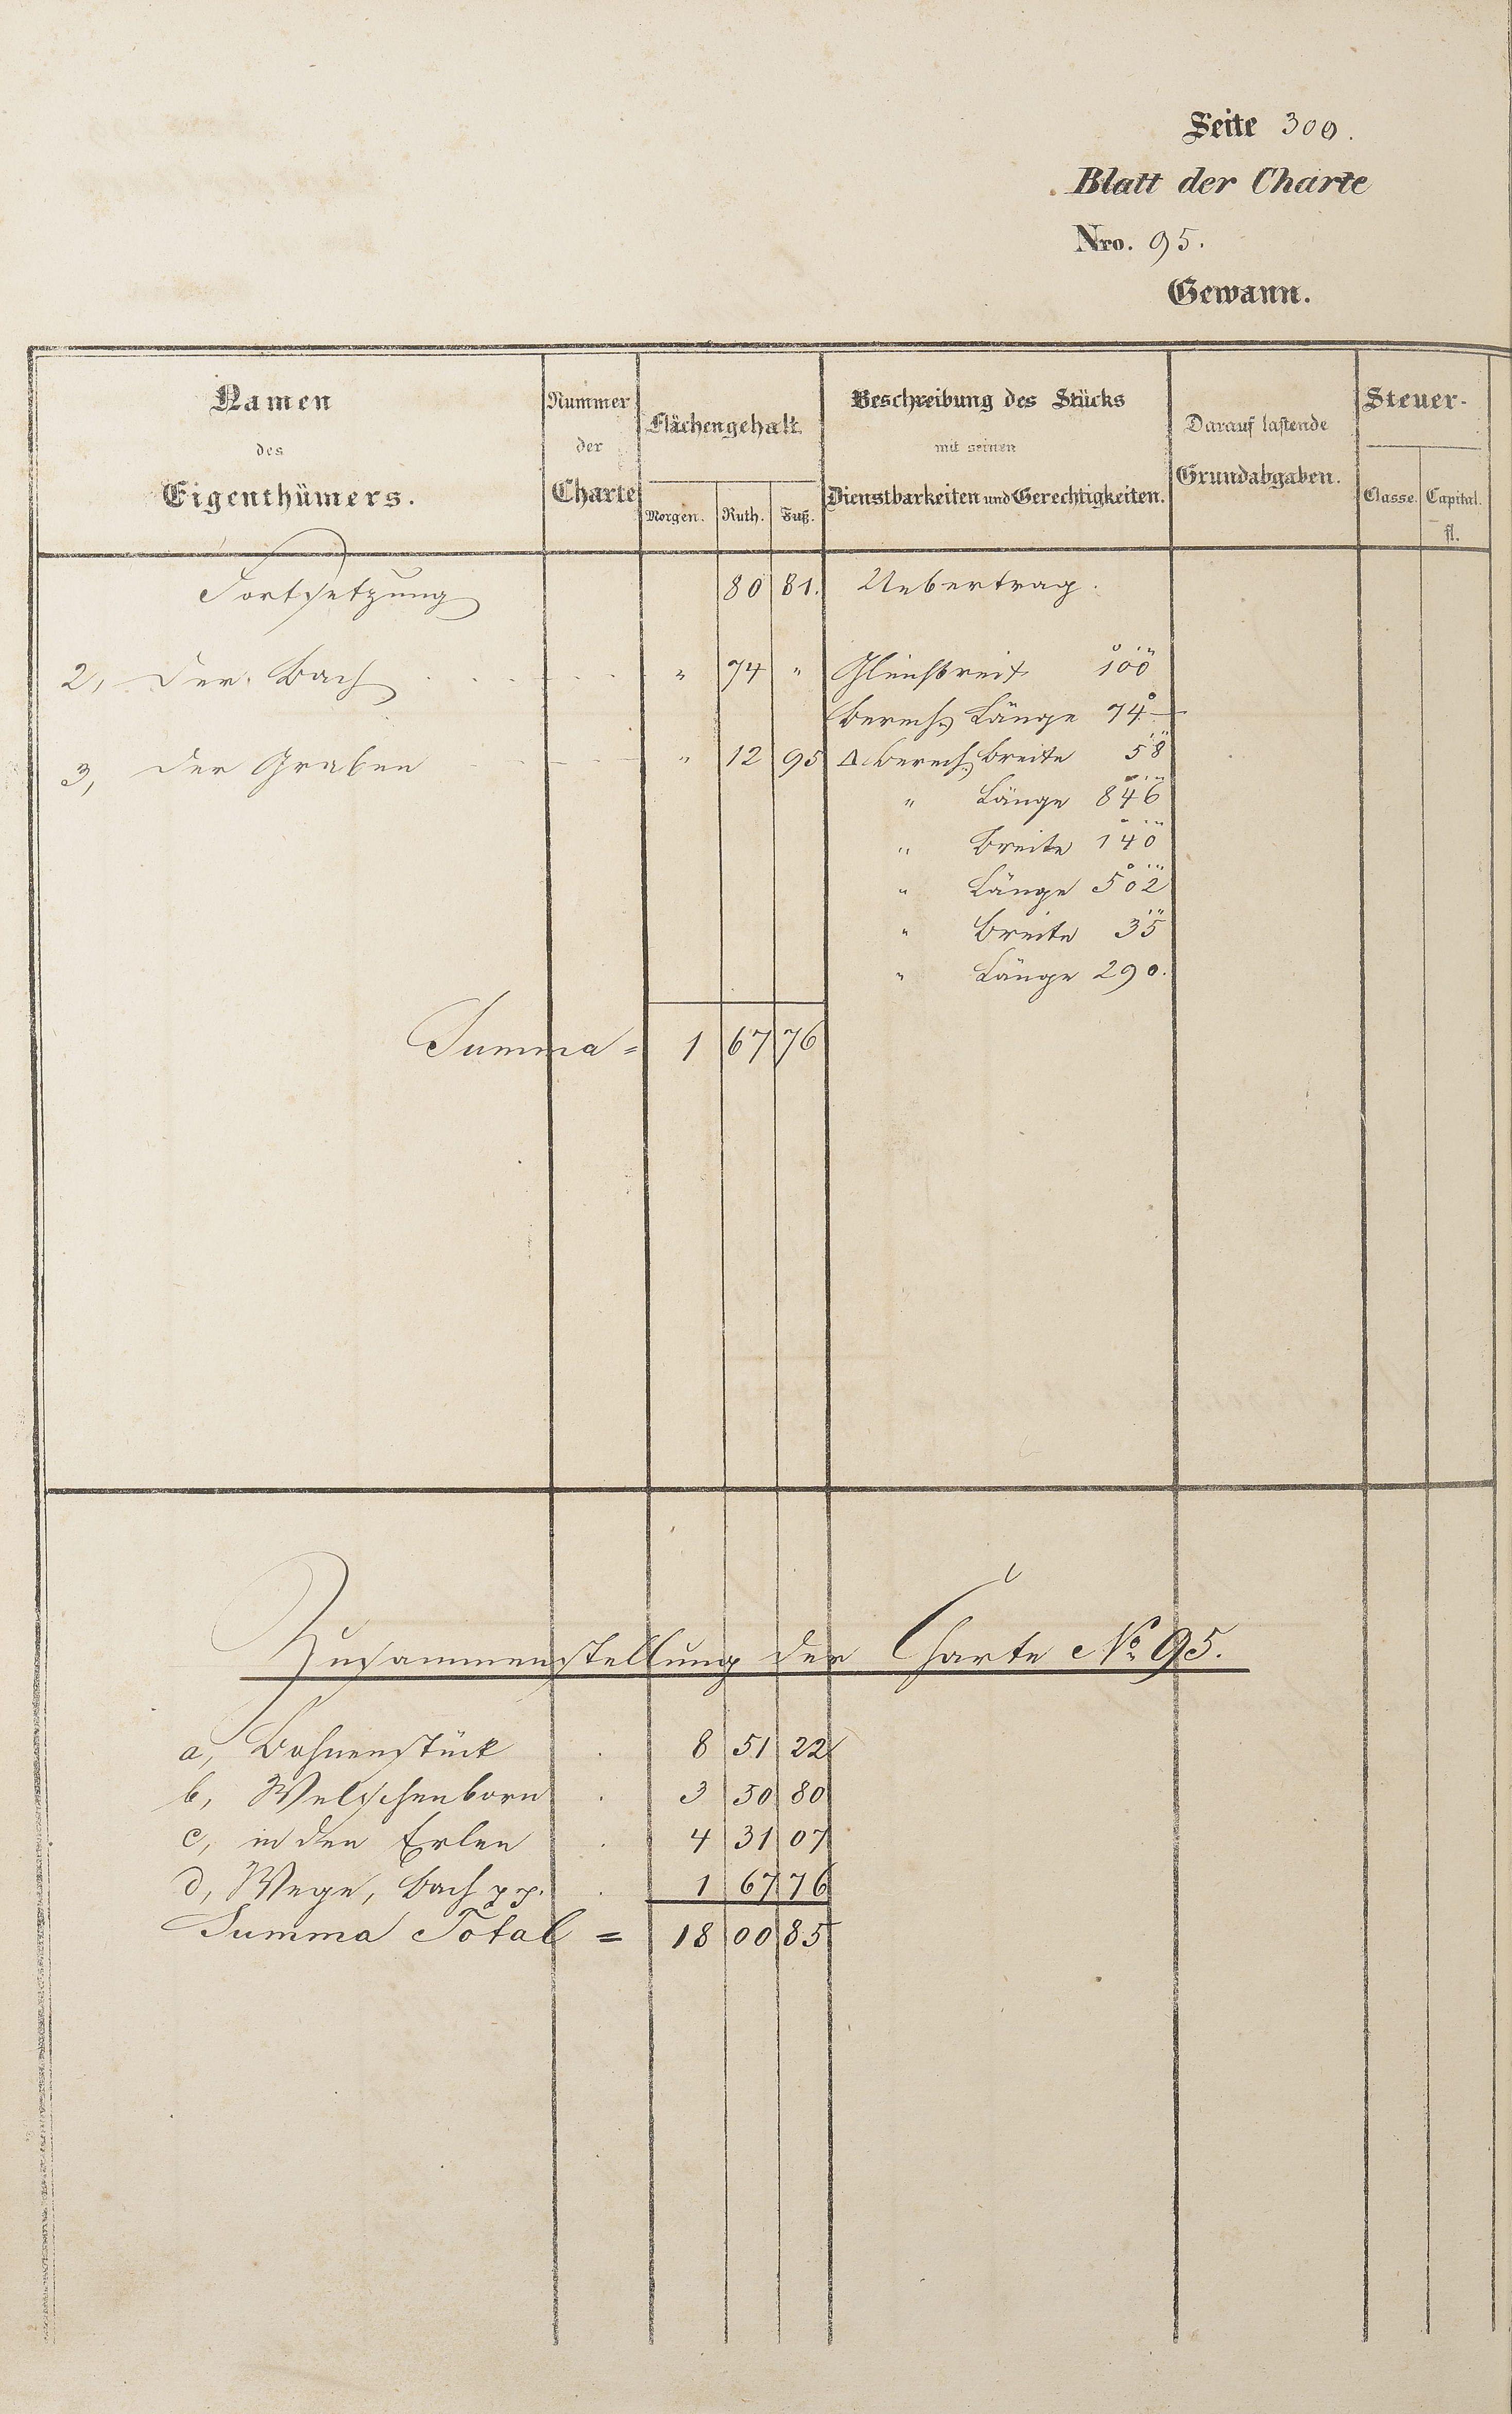 Seite 300.
Blatt der Charte
Nro. 95.
Gewann.
Namen des Eigenthümers.
Nummer der Charte
Flächengehalt.
Morgen. Ruth. Fuß.
Beschreibung des Stücks mit seinen Dienstbarkeiten und Gerechtigkeiten.
Darauf lastende Grundabgaben.
Steuer-
Classe. Capital. fl.
Fortsetzung 80 81. Uebertrag.
2, Der Bach " 74 " Gleichbreit 100
berech. Länge 74 —
3, Der Graben " 12 95 Δ berech. Breite 58
" Länge 846
" Breite 140
" Länge 502
" Breite 35
" Länge 290.
Summa = 1 67 76
Zusammenstellung der Charte No 95.
a, Bohnenstück . 8 51 22
b, Welschenborn . 3 50 80
c, in den Erlen . 4 31 07
d, Wege, Bach pp. . 1 67 76
Summa Total = 18 00 85